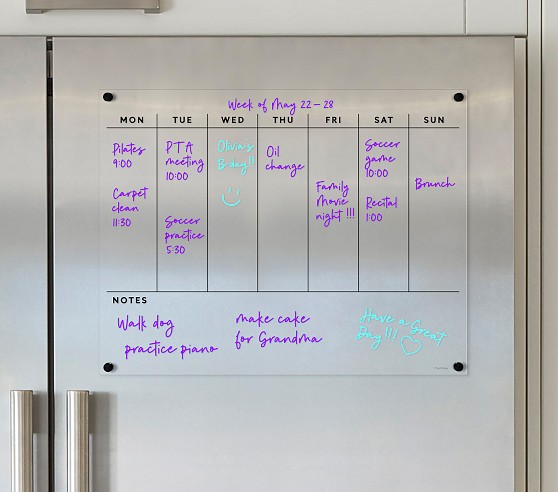 Week of May 22 – 28
MON TUE WED THU FRI SAT SUN
Pilates
9:00
Carpet
clean
11:30
PTA
meeting
10:00
Soccer
practice
5:30
Olivia's
B-day!!
Oil
change
Family
Movie
night !!!
Soccer
game
10:00
Recital
1:00
Brunch
NOTES
Walk dog
practice piano
make cake
for Grandma
Have a Great
Day!!!